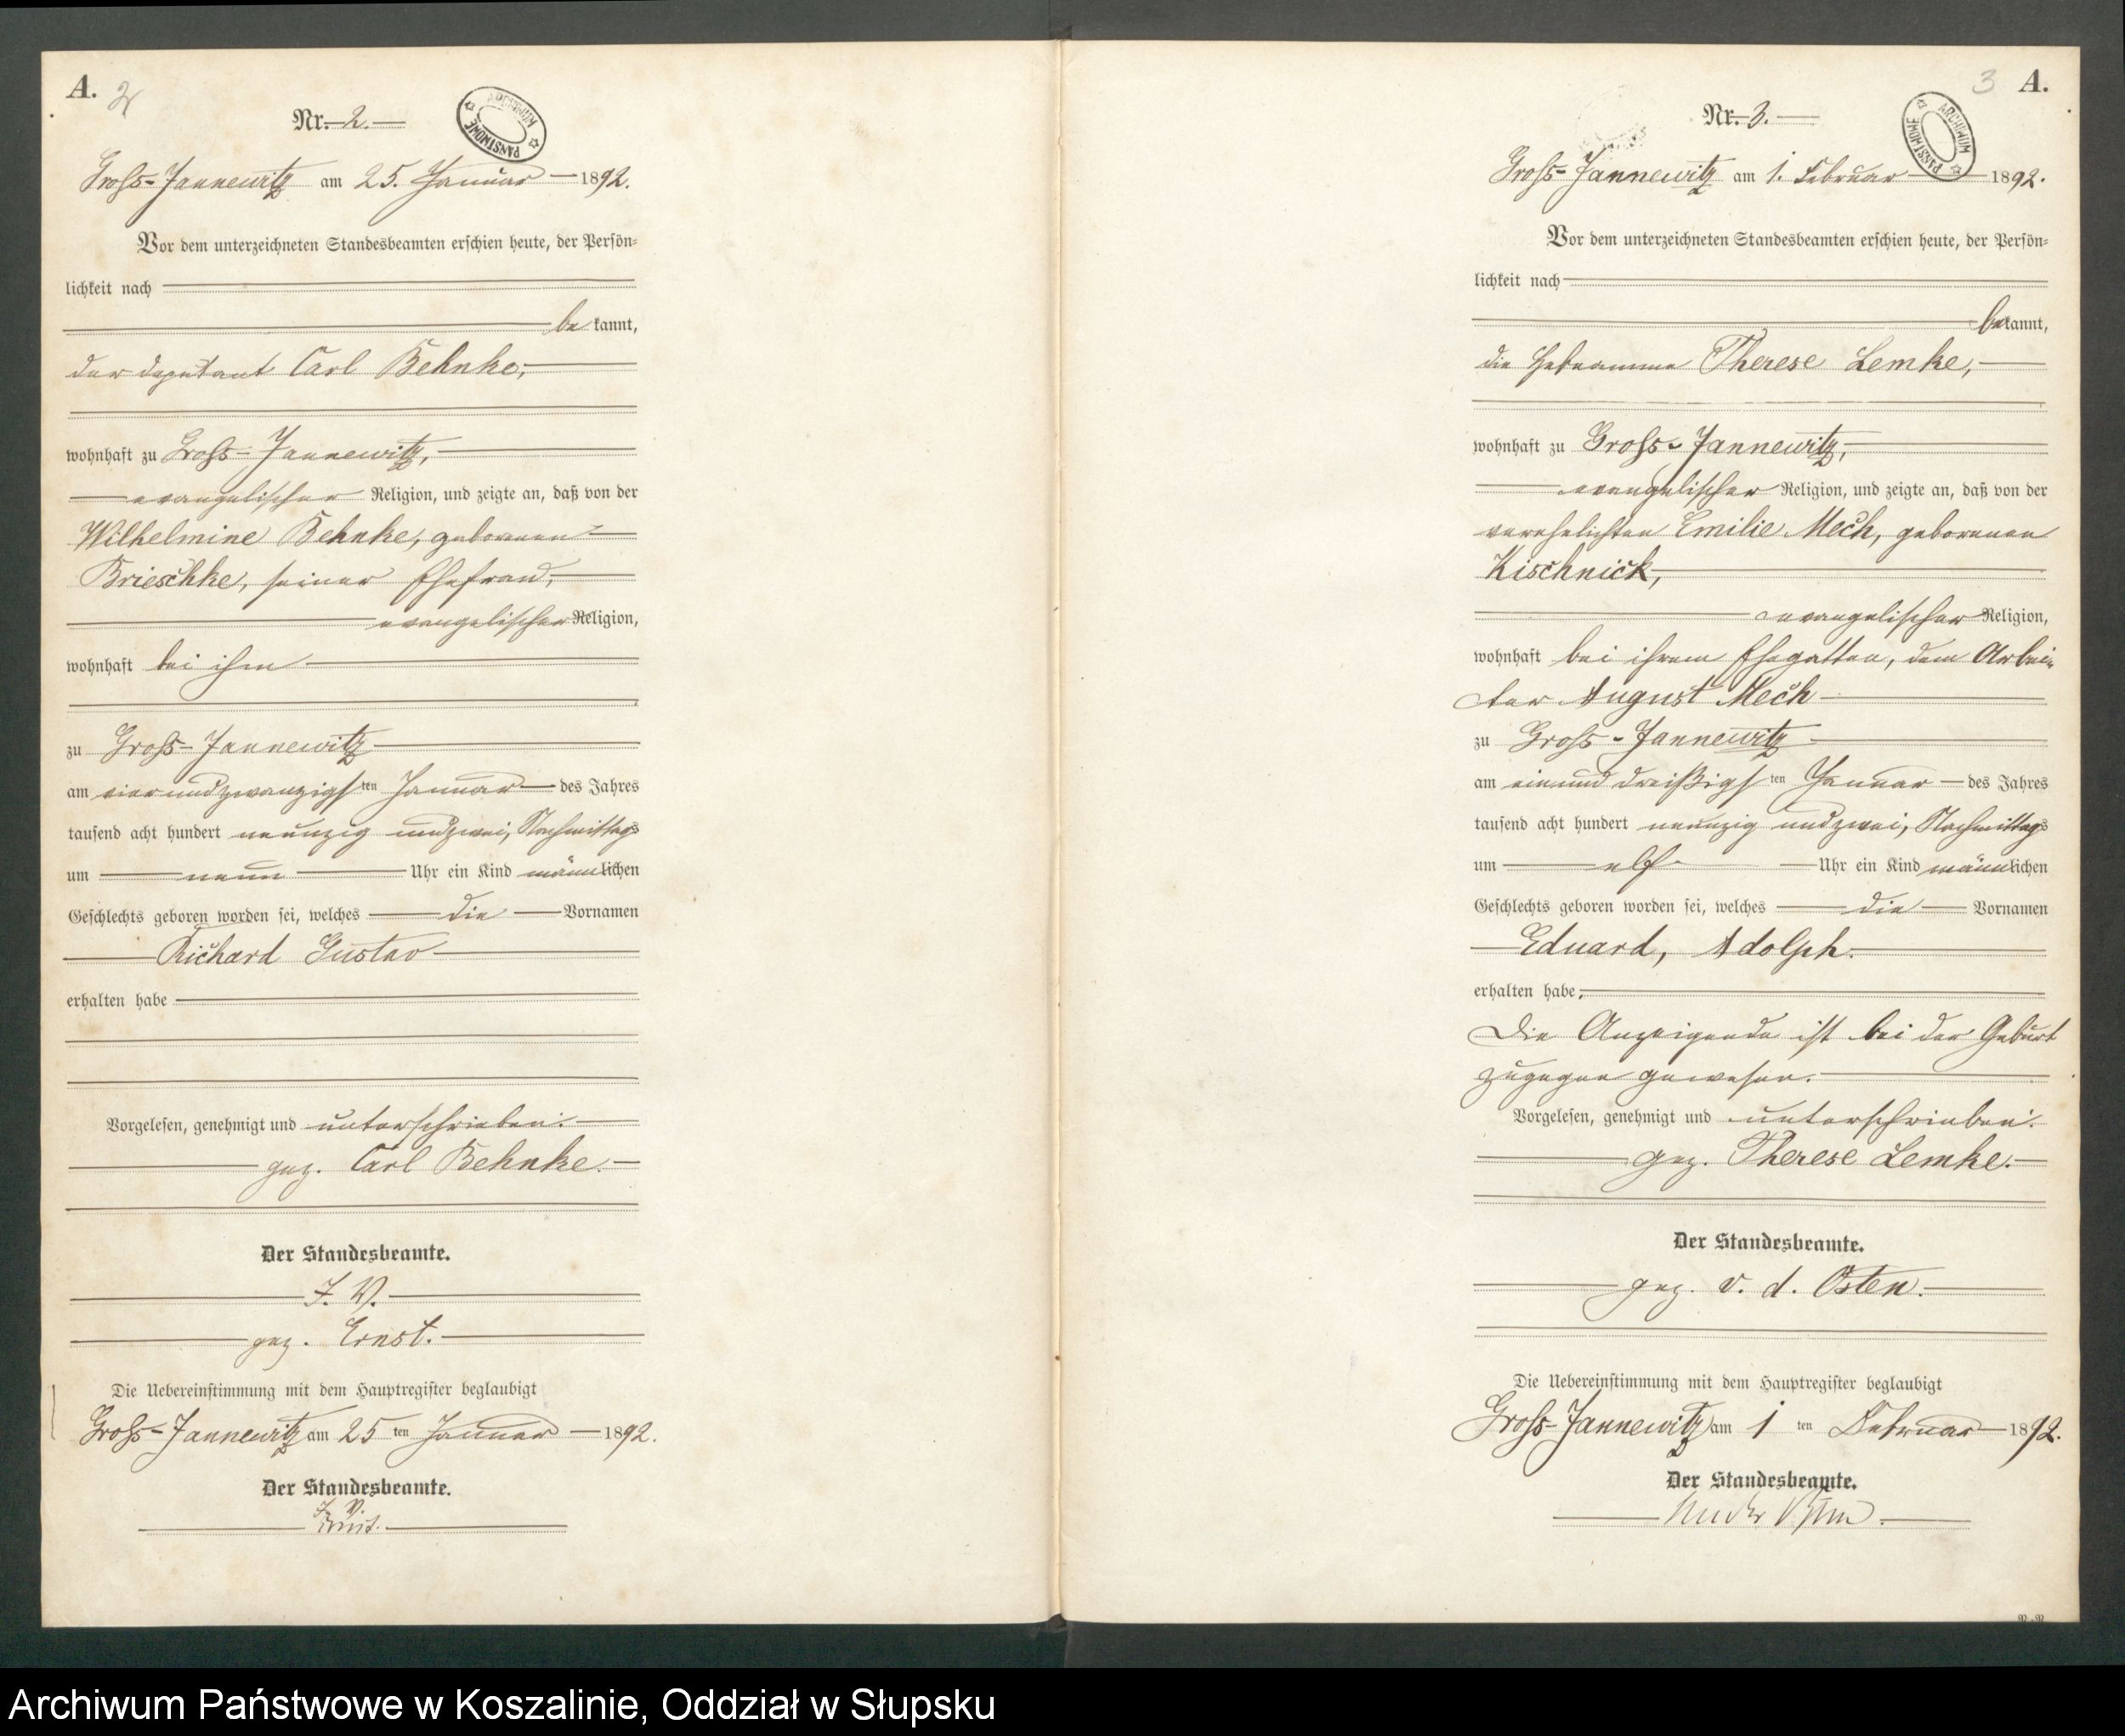 A.
2
Nr. 2.
ARCHIWUM PAŃSTWOWE
Groß-Jannewitz am 25. Januar 1892.
Vor dem unterzeichneten Standesbeamten erschien heute, der Persön-
lichkeit nach
be kannt,
der Deputant Carl Behnke,
wohnhaft zu Groß-Jannewitz,
evangelischer Religion, und zeigte an, daß von der
Wilhelmine Behnke, geborenen
Brieschke, seiner Ehefrau,
evangelischer Religion,
wohnhaft bei ihm
zu Groß-Jannewitz
am vierundzwanzigsten Januar des Jahres
tausend acht hundert neunzig und zwei, Nachmittags
um neun Uhr ein Kind männlichen
Geschlechts geboren worden sei, welches die Vornamen
Richard Gustav
erhalten habe
Vorgelesen, genehmigt und unterschrieben:
gez. Carl Behnke.
Der Standesbeamte.
J. V.
gez. Ernst.
Die Uebereinstimmung mit dem Hauptregister beglaubigt
Groß-Jannewitz am 25 ten Januar 1892.
Der Standesbeamte.
J. V.
Ernst.
3 A.
Nr. 3.
ARCHIWUM PAŃSTWOWE
Groß-Jannewitz am 1. Februar 1892.
Vor dem unterzeichneten Standesbeamten erschien heute, der Persön-
lichkeit nach
bekannt,
die Hebeamme Therese Lemke,
wohnhaft zu Groß-Jannewitz,
evangelischer Religion, und zeigte an, daß von der
verehelichten Emilie Mech, geborenen
Kischnick,
evangelischer Religion,
wohnhaft bei ihrem Ehegatten, dem Arbei-
ter August Mech
zu Groß-Jannewitz
am einund dreißigsten Januar des Jahres
tausend acht hundert neunzig und zwei, Nachmittags
um elf Uhr ein Kind männlichen
Geschlechts geboren worden sei, welches die Vornamen
Eduard, Adolph.
erhalten habe,
Die Anzeigende ist bei der Geburt
zugegen gewesen.
Vorgelesen, genehmigt und unterschrieben:
gez. Therese Lemke.
Der Standesbeamte.
gez. v. d. Osten.
Die Uebereinstimmung mit dem Hauptregister beglaubigt
Groß-Jannewitz am 1 ten Februar 1892.
Der Standesbeamte.
Archiwum Państwowe w Koszalinie, Oddział w Słupsku